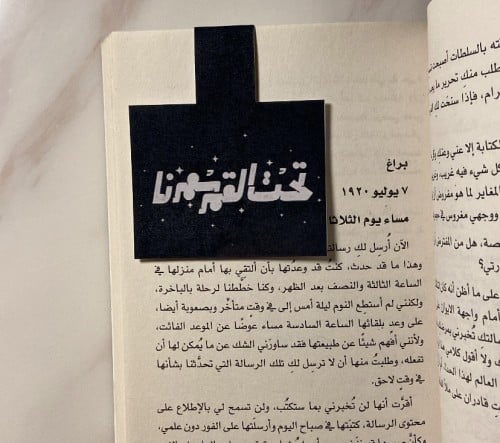 تحت القمر سهرنا
براغ
٧ يوليو ١٩٢٠
مساء يوم الثلاثا
الآن أُرسِل لكِ رسالة
وهذا ما قد حدث، كنتُ قد وعدتُها بأن ألتقي بها أمام منزلها في
الساعة الثالثة والنصف بعد الظهر، وكنا خططنا لرحلة بالباخرة،
ولكنني لم أستطِع النوم ليلة أمس إلى في وقتٍ متأخّر وبصعوبة أيضا،
على وعد بلقائها الساعة السادسة مساء عوضًا عن الموعد الفائت،
ولأنني أفهم شيئًا عن طبيعتها فقد ساورَني الشك عن ما يُمكن لها أن
تفعله، وطلبتُ منها أن لا ترسِل لكِ تلك الرسالة التي تحدّثنا بشأنها
في وقتٍ لاحق.
أقرَّت أنها لن تُخبرني بما ستكتُب، ولن تسمح لي بالإطلاع على
محتوى الرسالة، كتبَتها في صباح اليوم وأرسلتها على الفور دون علمي،
ته بالسلطات أصبحت
طلب منكِ تحرير ما
رام، فإذا سنحَت لكِ
لكتابة إلا عني وعنكِ
كل شيء فيه غريب،
المغاير لما هو مفروض
ووجهي مفروس في
صة، هل من المفترض
رتي؟
على ما أظن أنه
أمام واجهة
سالتك تُخبرني
ك ولا أقول كلامي
العالم لهذا
في وقت قادران على